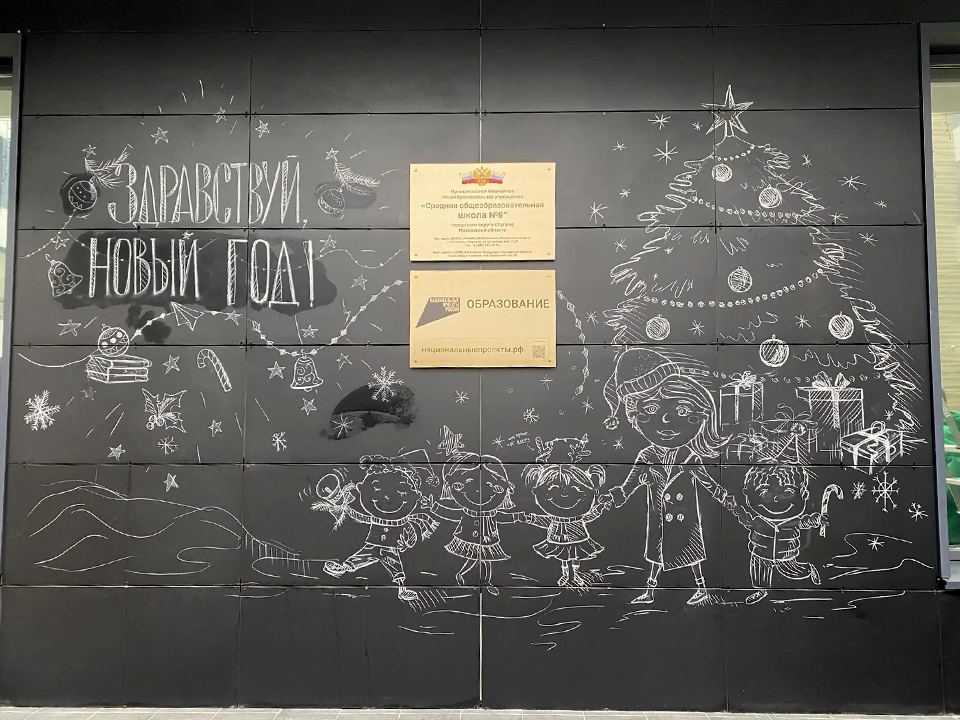 ЗДРАВСТВУЙ,
НОВЫЙ ГОД!
Муниципальное бюджетное
общеобразовательное учреждение
«Средняя общеобразовательная
школа №9"
городского округа Ступино
Московской области
НАЦИОНАЛЬНЫЕ
ПРОЕКТЫ
РОССИИ
ОБРАЗОВАНИЕ
национальныепроекты.рф